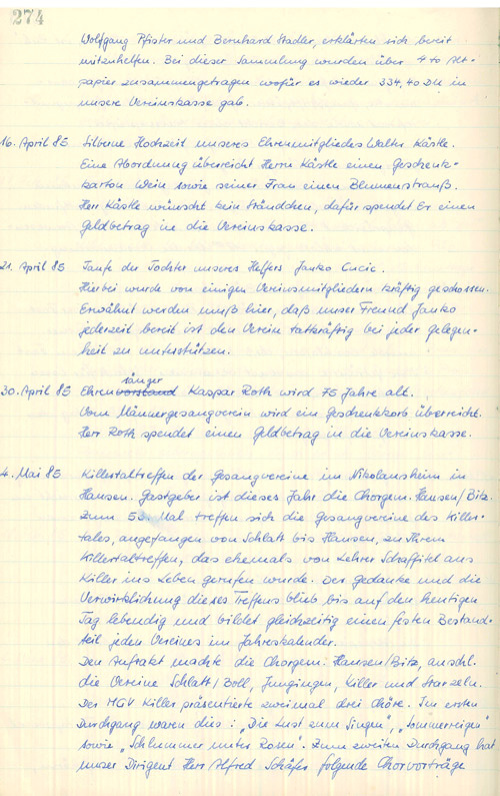 274
Wolfgang Pfister und Bernhard Stadler, erklärten sich bereit
mitzuhelfen. Bei dieser Sammlung wurden über 4 to Alt-
papier zusammengetragen wofür es wieder 334,40 DM in
unsere Vereinskasse gab.
16. April 85 Silberne Hochzeit unseres Ehrenmitgliedes Walter Kästle.
Eine Abordnung überreicht Herrn Kästle einen Geschenk-
karton Wein sowie seiner Frau einen Blumenstrauß.
Herr Kästle wünscht kein Ständchen, dafür spendet Er einen
Geldbetrag in die Vereinskasse.
21. April 85 Taufe der Tochter unseres Helfers Janko Cucic.
Hierbei wurde von einigen Vereinsmitgliedern kräftig geschossen.
Erwähnt werden muß hier, daß unser Freund Janko
jederzeit bereit ist den Verein tatkräftig bei jeder gelegen-
heit zu unterstützen.
sänger
30. April 85 Ehrenvorstand Kaspar Roth wird 75 Jahre alt.
Vom Männergesangverein wird ein Geschenkkorb überreicht.
Herr Roth spendet einen Geldbetrag in die Vereinskasse.
4. Mai 85 Killertaltreffen der Gesangvereine im Nikolausheim in
Hausen. Gastgeber ist dieses Jahr die Chorgem. Hausen/Bitz.
Zum 53. Mal treffen sich die Gesangvereine des Killer-
tales, angefangen von Schlatt bis Hausen, zu Ihrem
Killertaltreffen, das ehemals von Lehrer Schaffitel aus
Killer ins Leben gerufen wurde. Der Gedanke und die
Verwirklichung dieses Treffens blieb bis auf den heutigen
Tag lebendig und bildet gleichzeitig einen festen Bestand-
teil jeden Vereines im Jahreskalender.
Den Auftakt machte die Chorgem. Hausen/Bitz, anschl.
die Vereine Schlatt/Boll, Jungingen, Killer und Starzeln.
Der MGV Killer präsentierte zweimal drei Chöre. Im ersten
Durchgang waren dies: „Die Lust zum Singen", „Sommerreigen"
sowie „Schlummer unter Rosen". Zum zweiten Durchgang hat
unser Dirigent Herr Alfred Schäfer folgende Chorvorträge